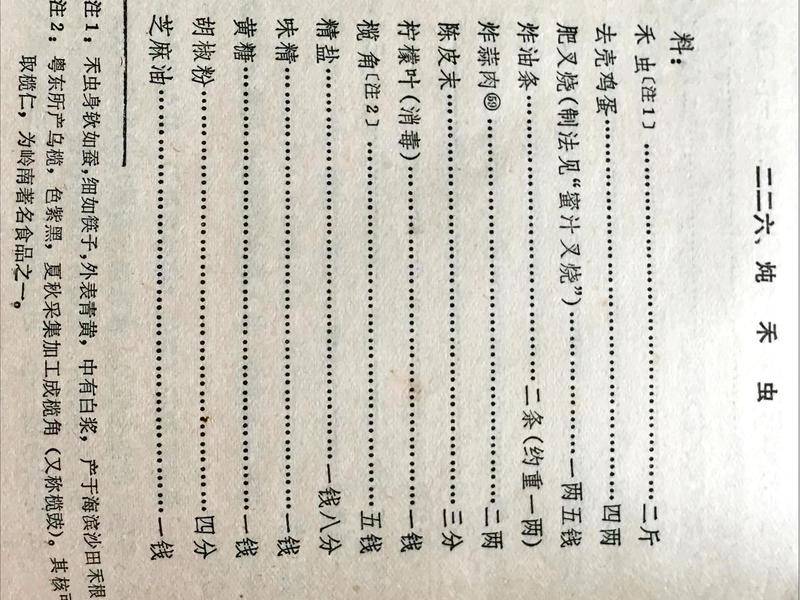 二二六、炖禾虫
料：
禾虫〔注1〕……二斤
去壳鸡蛋……四两
肥叉烧（制法见“蜜汁叉烧”）……一两五钱
炸油条……二条（约重一两）
炸蒜肉㊾……二两
陈皮末……三分
柠檬叶（消毒）……一钱
榄角〔注2〕……五钱
精盐……一钱八分
味精……一钱
黄糖……一钱
胡椒粉……四分
芝麻油……一钱
注1：禾虫身软如蚕，细如筷子，外表青黄，中有白浆，产于海滨沙田禾根
注2：粤东所产乌榄，色紫黑，夏秋采集加工成榄角（又称榄豉）。其核可
取榄仁，为岭南著名食品之一。